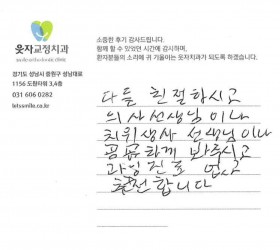 웃자교정치과
경기도 성남시 중원구 성남대로
1156 도원타워 3,4층
031 606 0282
letssmile.co.kr
소중한 후기 감사드립니다.
함께 할 수 있었던 시간에 감사하며,
환자분들의 소리에 귀 기울이는 웃자치과가 되도록 하겠습니다.
다들 친절하시고
의사선생님이나
치위생사 선생님이나
꼼꼼하게 봐주시고
과잉진료 없고
추천합니다